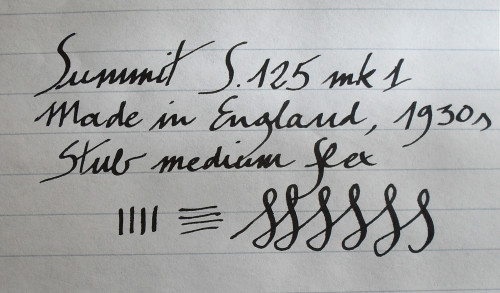 Summit S.125 mk1
Made in England, 1930s
Stub medium flex